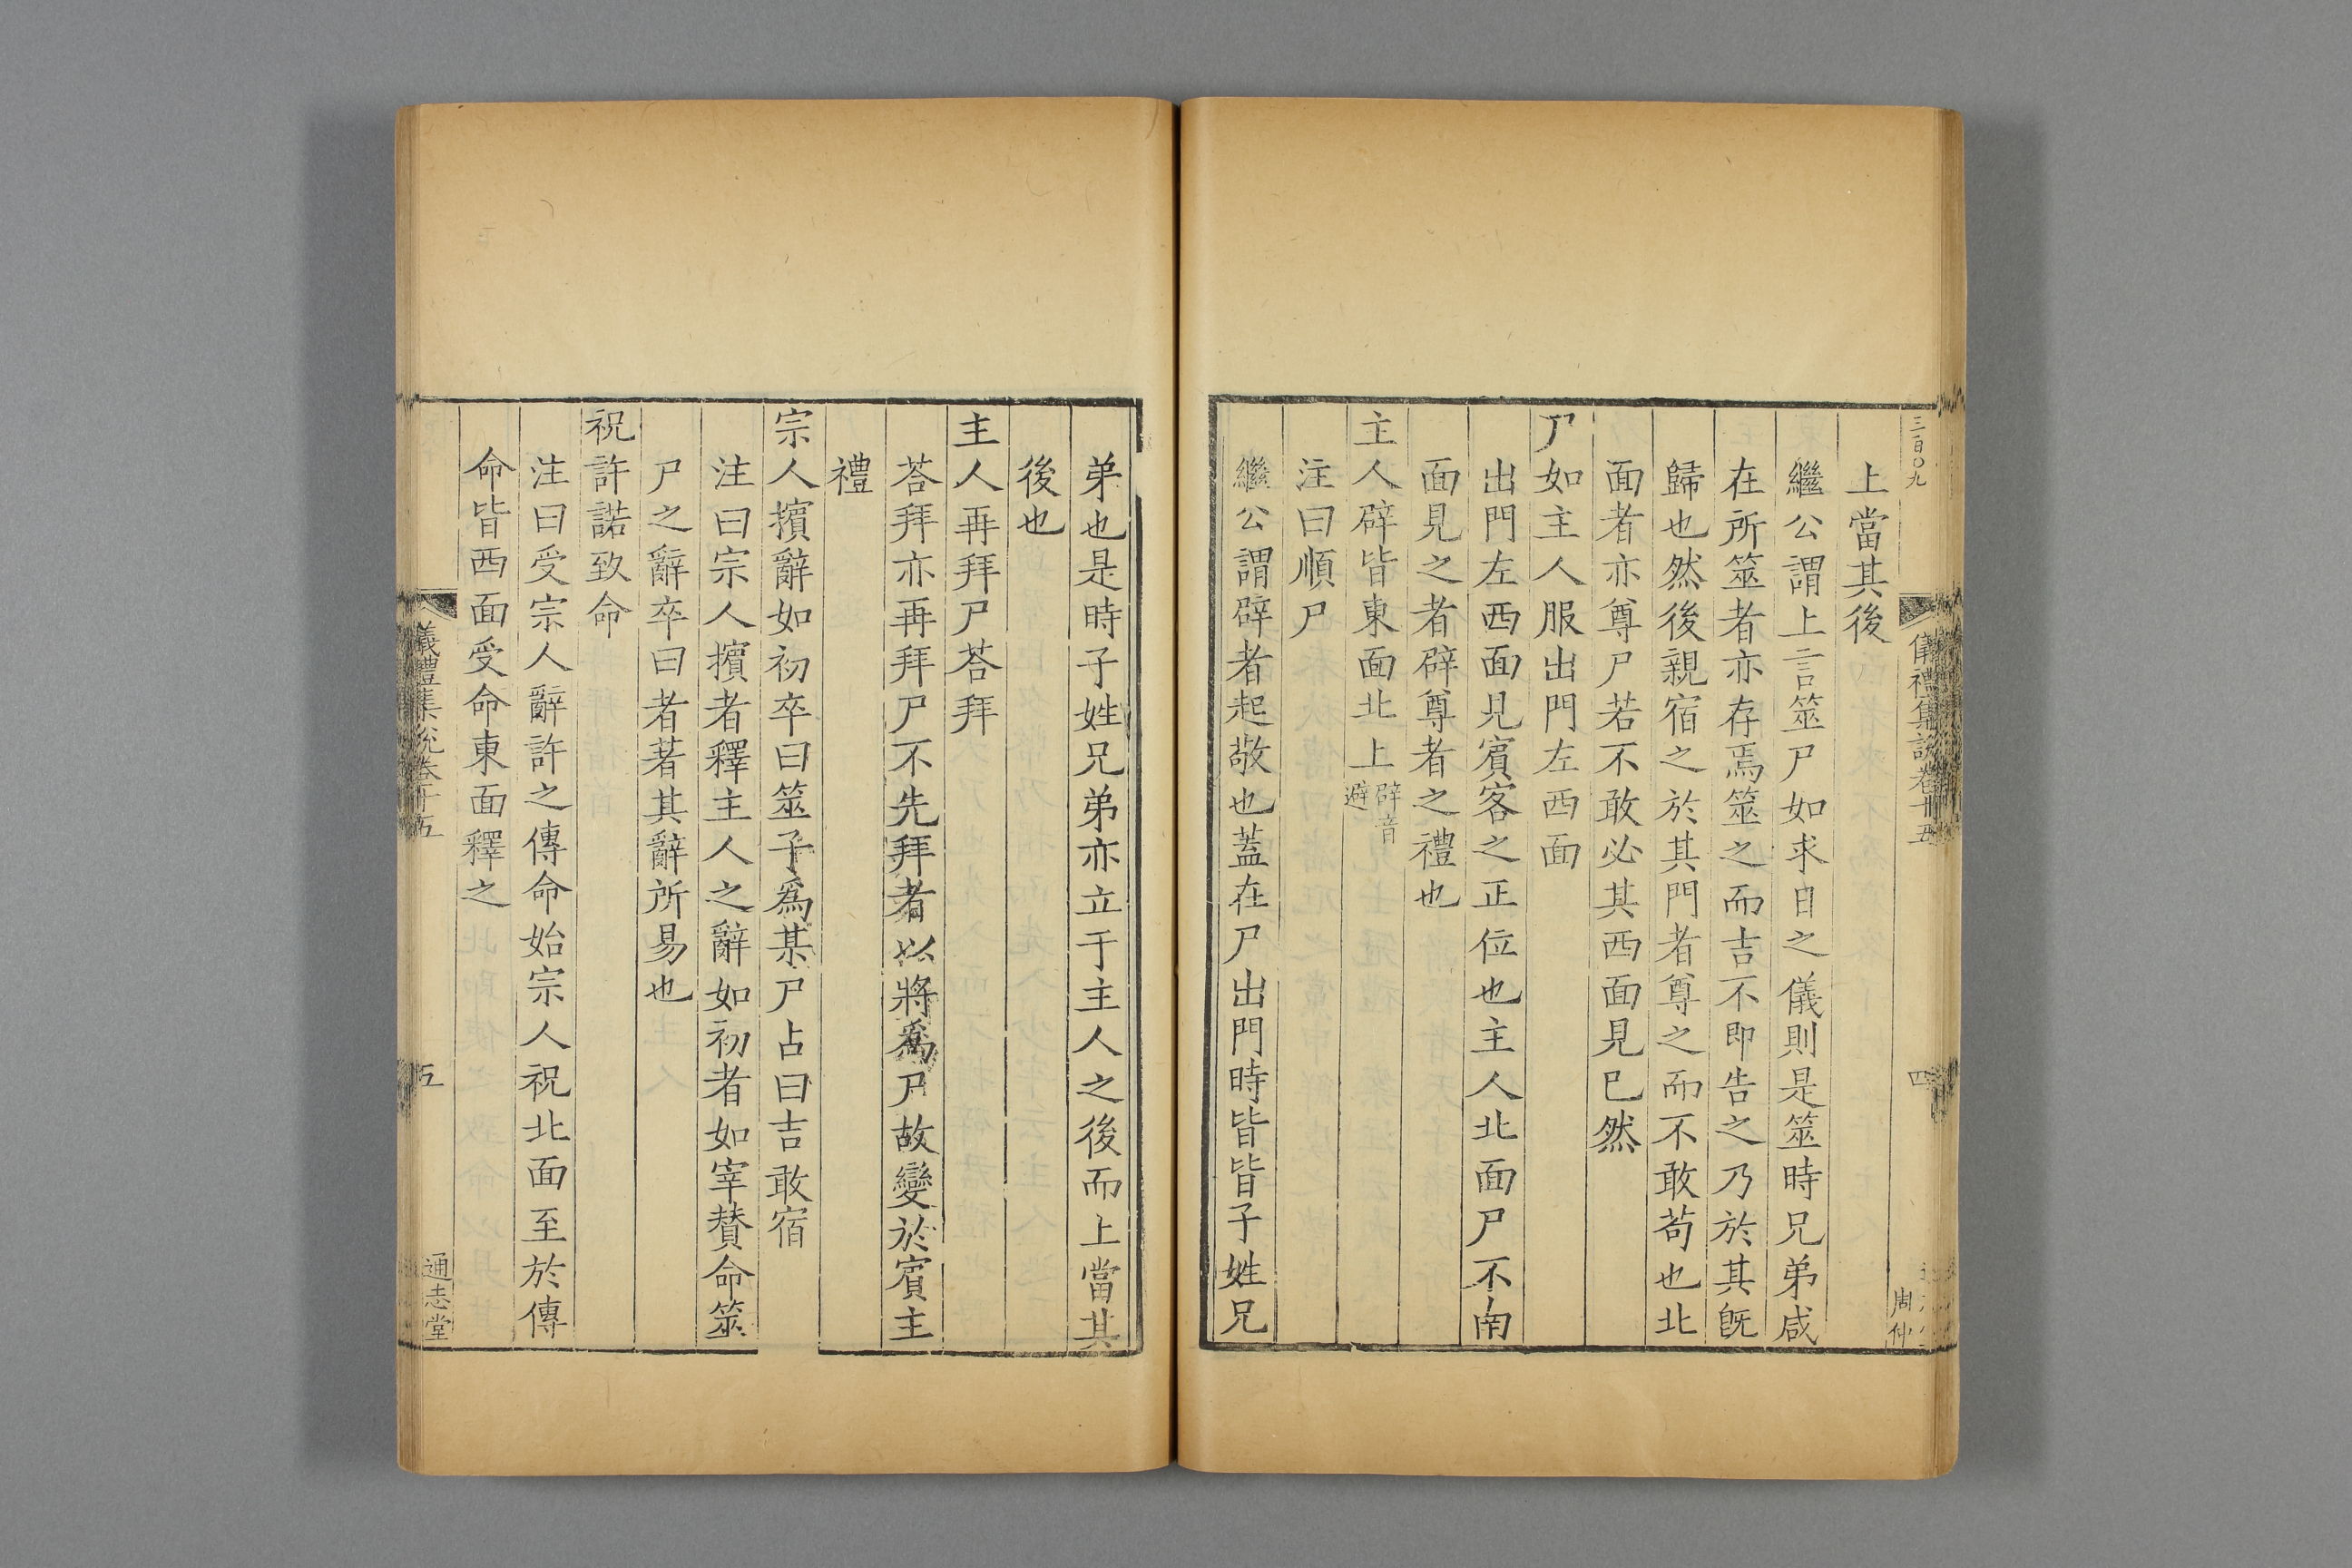 三百〇九
儀禮集說卷十五
四
周仲
上當其後
繼公謂上言筮尸如求日之儀則是筮時兄弟咸
在所筮者亦存焉筮之而吉不即告之乃於其既
歸也然後親宿之於其門者尊之而不敢苟也北
面者亦尊尸若不敢必其西面見已然
尸如主人服出門左西面
出門左西面見賓客之正位也主人北面尸不南
面見之者辟尊者之禮也
主人辟皆東面北上辟音
避
注曰順尸
繼公謂辟者起敬也蓋在尸出門時皆皆子姓兄
弟也是時子姓兄弟亦立于主人之後而上當其
後也
主人再拜尸荅拜
荅拜亦再拜尸不先拜者以將爲尸故變於賓主
禮
宗人擯辭如初卒曰筮子爲某尸占曰吉敢宿
注曰宗人擯者釋主人之辭如初者如宰贊命筮
尸之辭卒曰者著其辭所易也
祝許諾致命
注曰受宗人辭許之傳命始宗人祝北面至於傳
命皆西面受命東面釋之
儀禮集說卷十五
五
通志堂